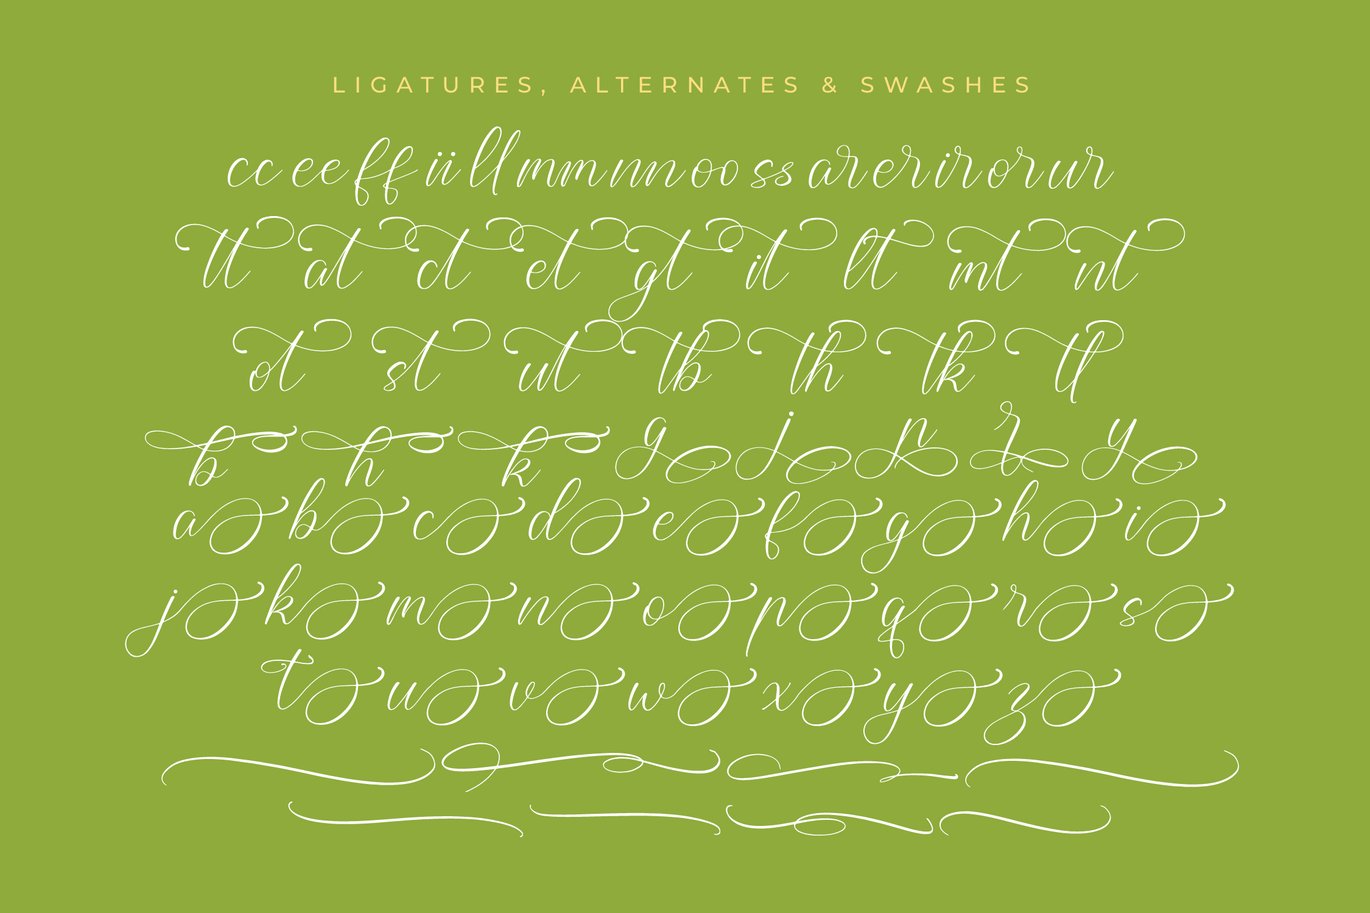 LIGATURES, ALTERNATES & SWASHES
cc ee ff ii ll mm nn oo ss ar er ir or ur
tt at ct et gt it lt mt nt
ot st ut tb th tk tl
b h k g j p r y
a b c d e f g h i
j k m n o p q r s
t u v w x y z